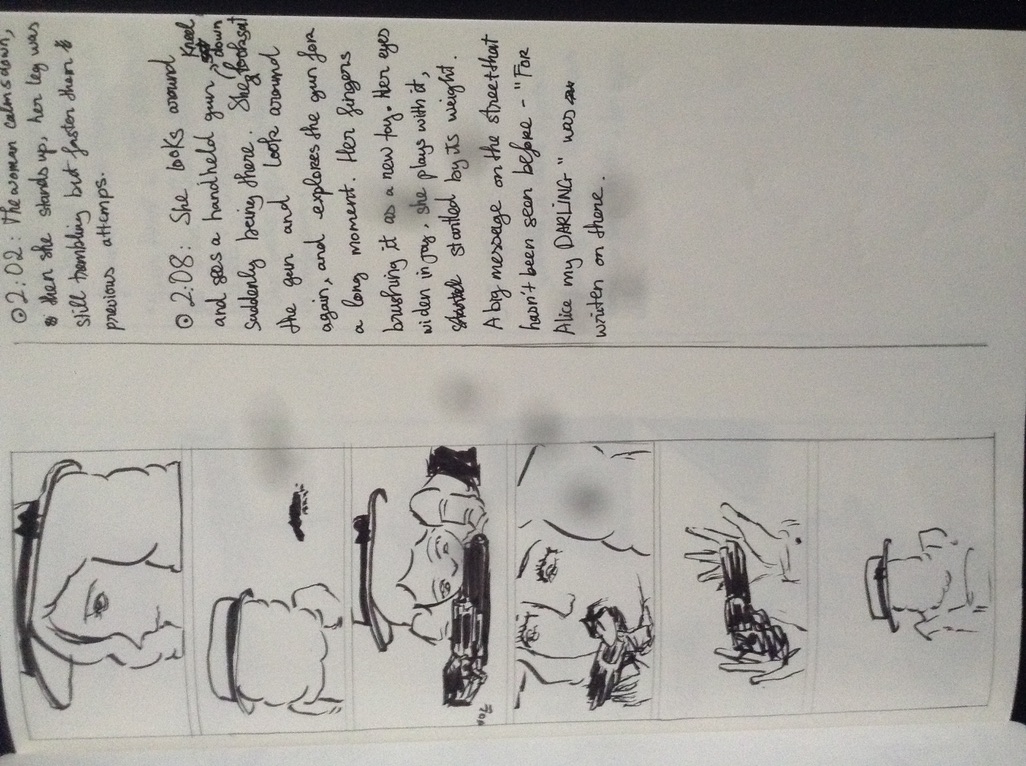 ⊙2:02: The woman calms down,
then she stands up, her leg was
still trembling but faster them
previous attemps.
⊙ 2:08: She looks around
and sees a handheld gun, kneel down
suddenly being there. She looks at
the gun and look around
again, and explores the gun for
a long moment. Her fingers
brushing it as a new toy. Her eyes
widen in joy, she plays with it,
startled by its weight.
A big message on the street that
hasn't been seen before - "FOR
Alice my DARLING" was
written on there.
FOR